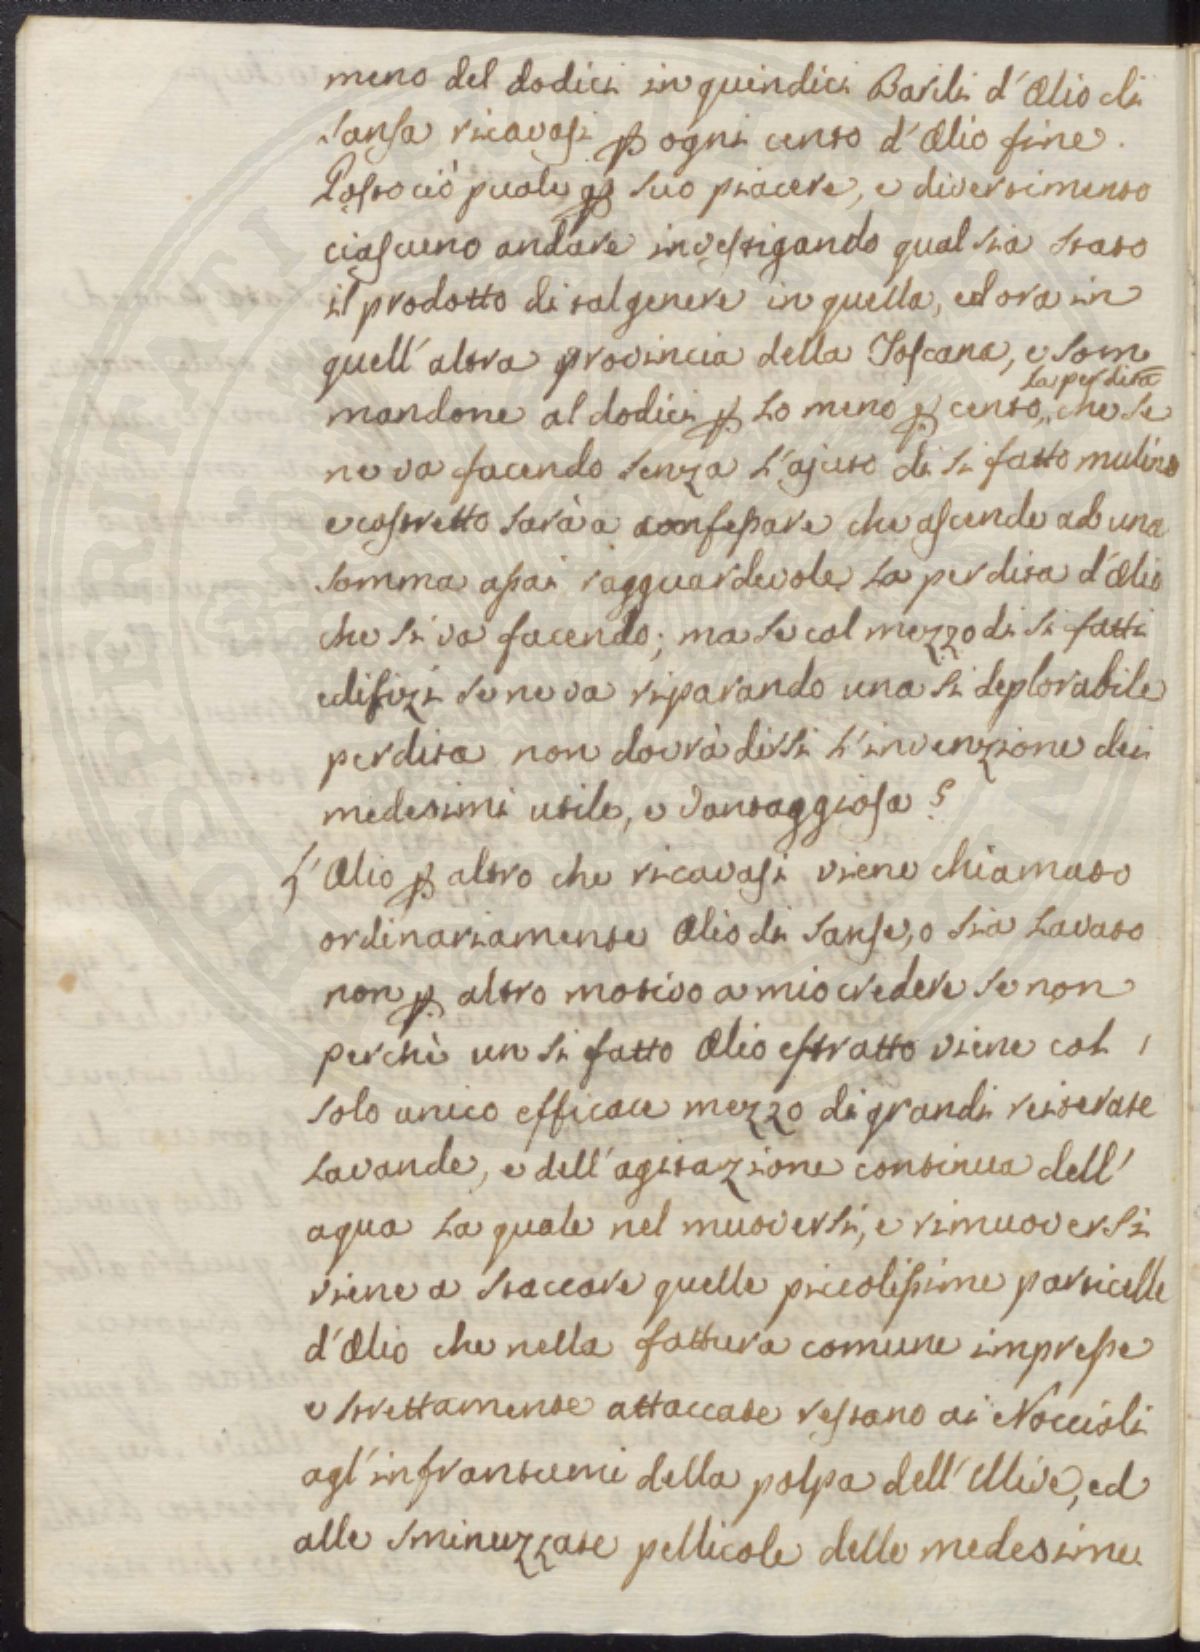 meno del dodici in quindici Barili d'Olio di
Sansa ricavasi ꝑ ogni cento d'Olio fine.
Posto ciò puole ꝑ suo piacere, e divertimento
ciascuno andare investigando qual sia stato
il prodotto di tal genere in quella, ed ora in
quell'altra provincia della Toscana, e som
mandone al dodici ꝑ lo meno ꝑ cento, la perdita che se
ne va facendo senza l'ajuto di si fatto mulino
e costretto sarà a confessare che ascende ad una
somma assai ragguardevole la perdita d'Olio
che si va facendo; ma se col mezzo di si fatti
edifizi se ne va riparando una si deplorabile
perdita non dovrà dirsi l'invenzione dei
medesimi utile, e vantaggiosa?
L'Olio ꝑ altro che ricavasi viene chiamato
ordinariamente Olio di Sanse, o sia lavato
non ꝑ altro motivo a mio credere se non
perchè un si fatto Olio estratto viene col
solo unico efficace mezzo di grandi reiterate
lavande, e dell'agitazione continua dell'
aqua la quale nel muoversi, e rimuoversi
viene a staccare quelle piccolissime particelle
d'Olio che nella fattura comune impresse
e strettamente attaccate restano ai Noccioli
agl'infrantumi della polpa dell'Ulive, ed
alle sminuzzate pellicole delle medesime